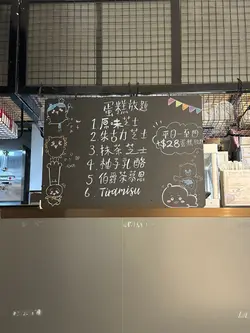 蛋糕放題
1 原味芝士
2 朱古力芝士
3 抹茶芝士
4 柚子乳酪
5 伯爵茶慕思
6. Tiramisu
平日一至四
+$28